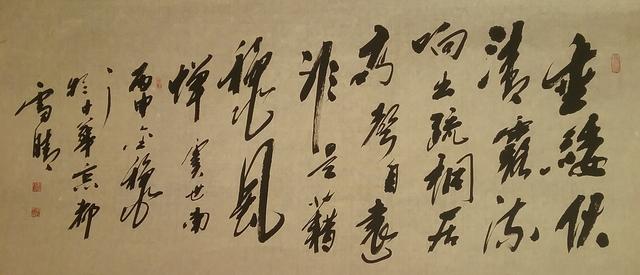 垂緌饮
清露流
响出疏桐居
高聲自遠
非是藉
秋風
蟬 虞世南
丙申金秋
於 京都
雪晴